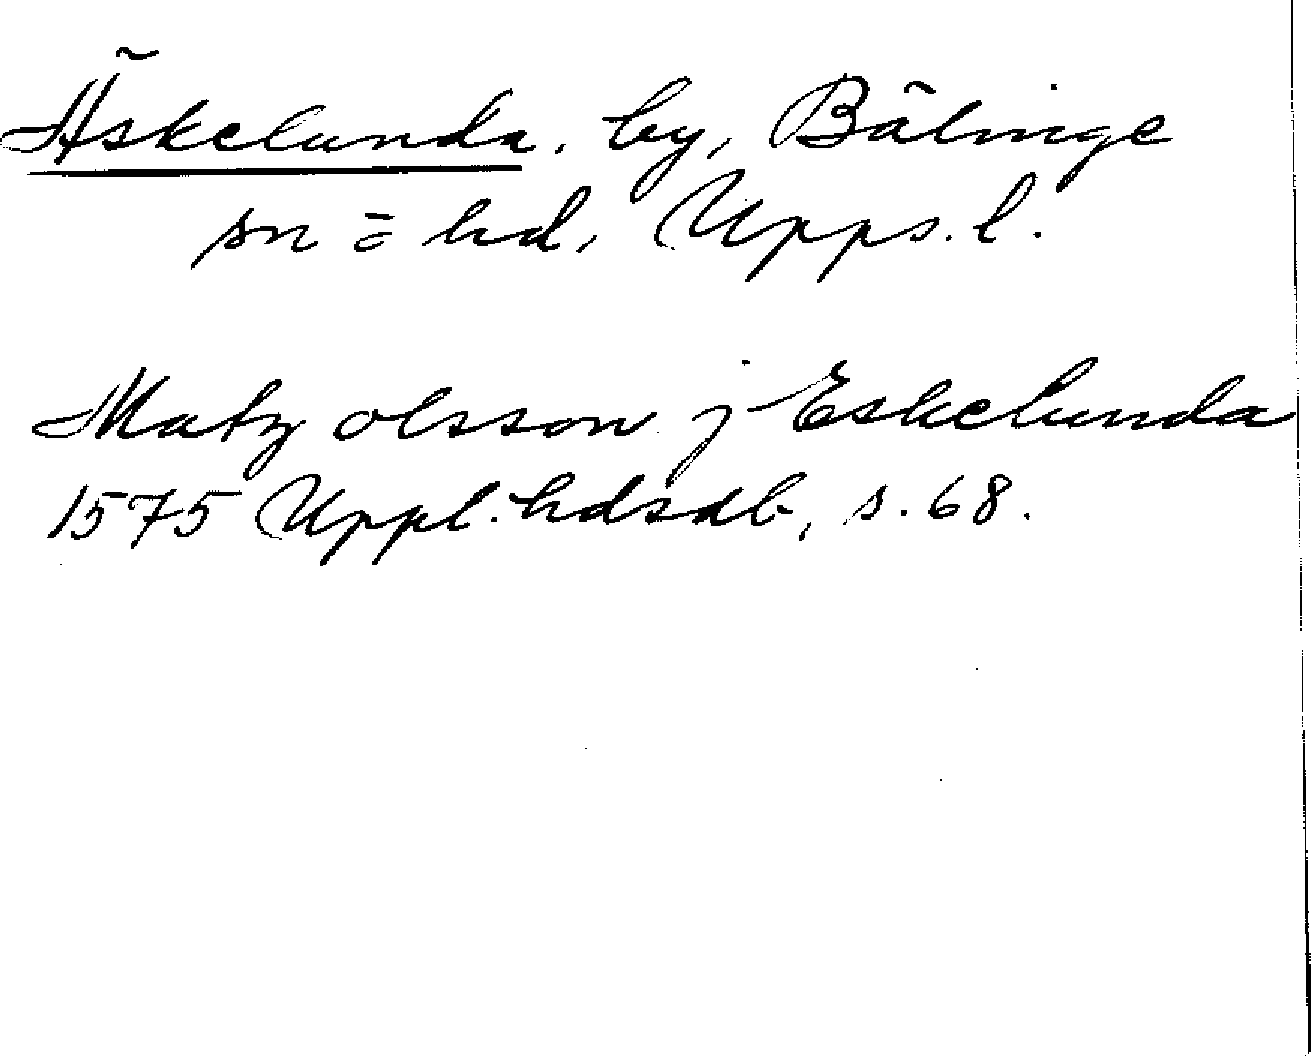 Äskelunda, by, Bälinge
sn o hd, Upps. l.
Matz olsson j Eskelunda
1575 Uppl. hdsdb, s. 68.